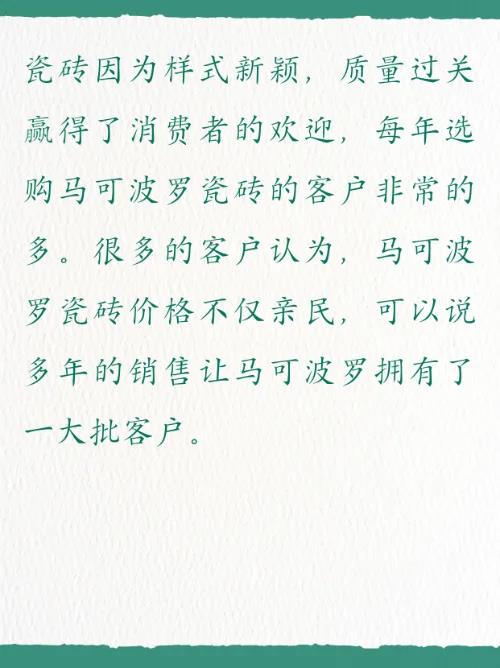 瓷砖因为样式新颖，质量过关
赢得了消费者的欢迎，每年选
购马可波罗瓷砖的客户非常的
多。很多的客户认为，马可波
罗瓷砖价格不仅亲民，可以说
多年的销售让马可波罗拥有了
一大批客户。